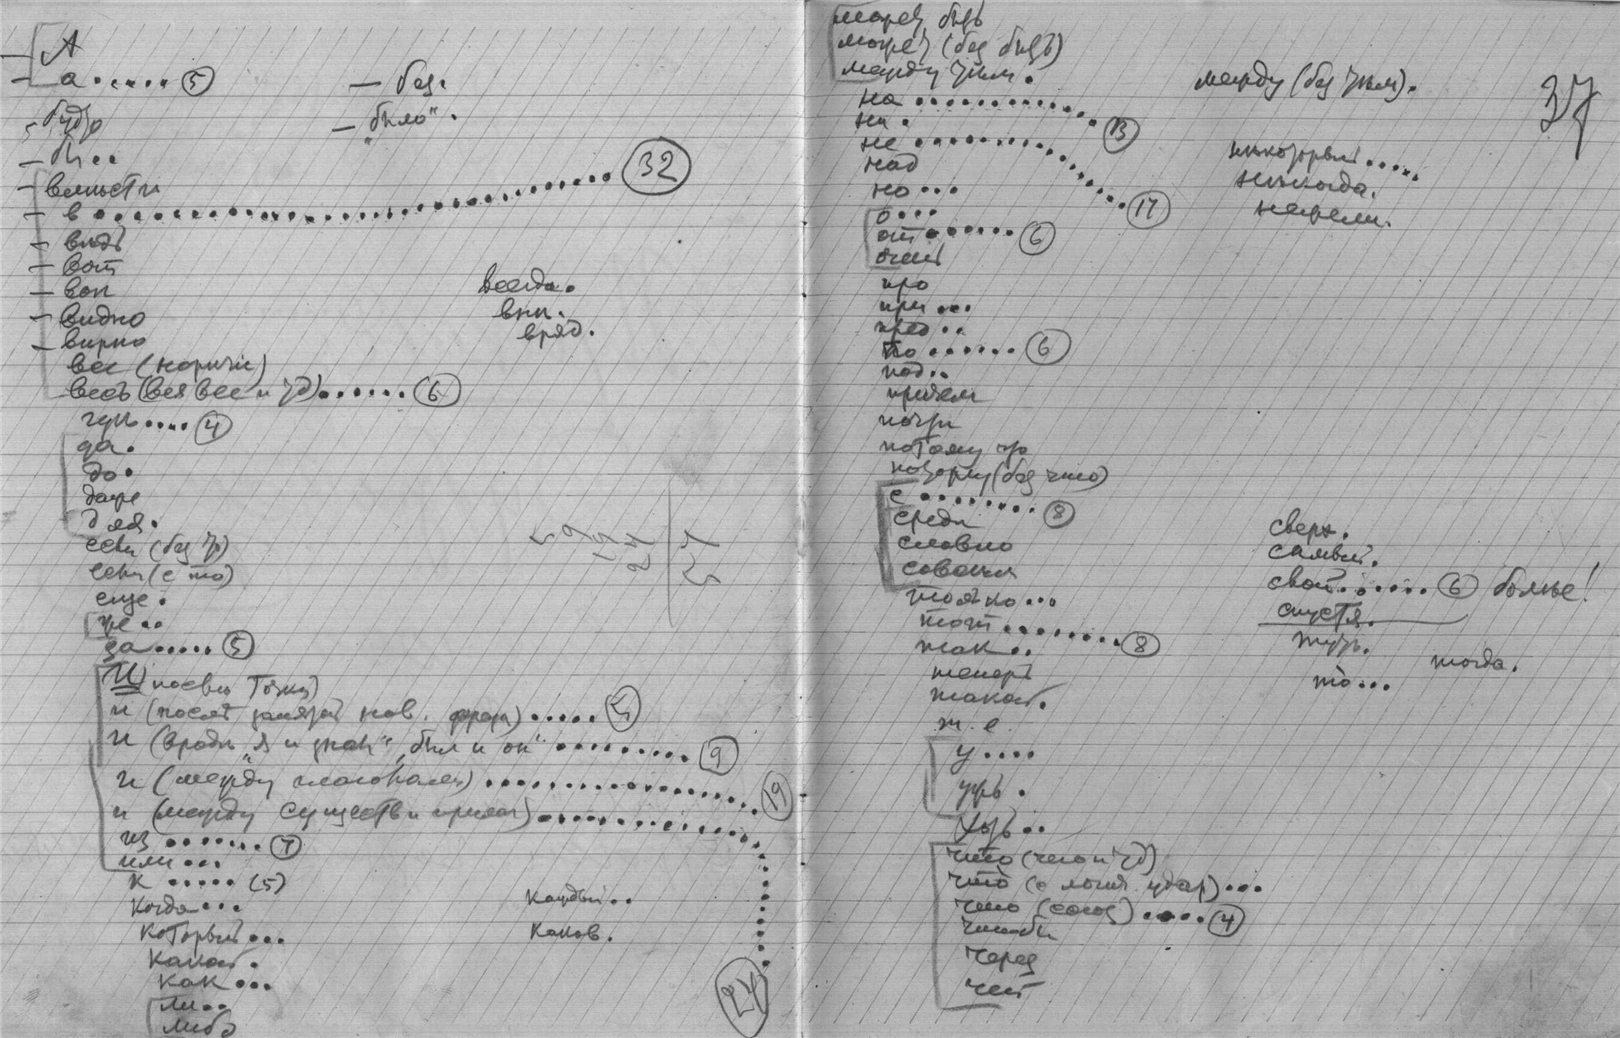 А
— а ...... (5)
— без.
будто
— „было“.
— бы ..
(32)
— в ......
— ведь
— вот
— вон
всегда.
— видно
вне.
— верно
вряд.
все (наречие)
весь (вся все и т д) ...... (6)
.... (4)
да.
до.
даже
для.
если (без то)
если (с то)
еще.
же ..
за ..... (5)
И (после точки)
и (после запятой нов. фраза) .....
и (вроде „я и знал“, „был и он“ ......... (9)
и (между глаголами) ......... (19)
и (между существ и прилаг) ......... (24)
из ....... (7)
или ...
к ..... (5)
когда ...
каждый ..
который ...
каков.
какой.
как ...
ли ..
либо
может быть
может (без быть)
между тем.
между (без тем).
37
на ......... (13)
ни.
не ......... (17)
некоторый .....
над
никогда.
но ...
нежели.
о ...
от ...... (6)
очень
про
при ...
пред ..
по ...... (6)
под ..
причем
почти
потому что
потому (без что)
с ........ (8)
среди
сверх.
словно
самый.
совсем
свой ....... (6) больше!
только ...
спустя.
тот ........ (8)
так ..
тогда.
теперь
то ...
такой.
т. е.
у ....
уже.
хоть ..
что (чего и т д)
что (с логич. удар) ...
что (союз) ..... (4)
чтобы
через
чем